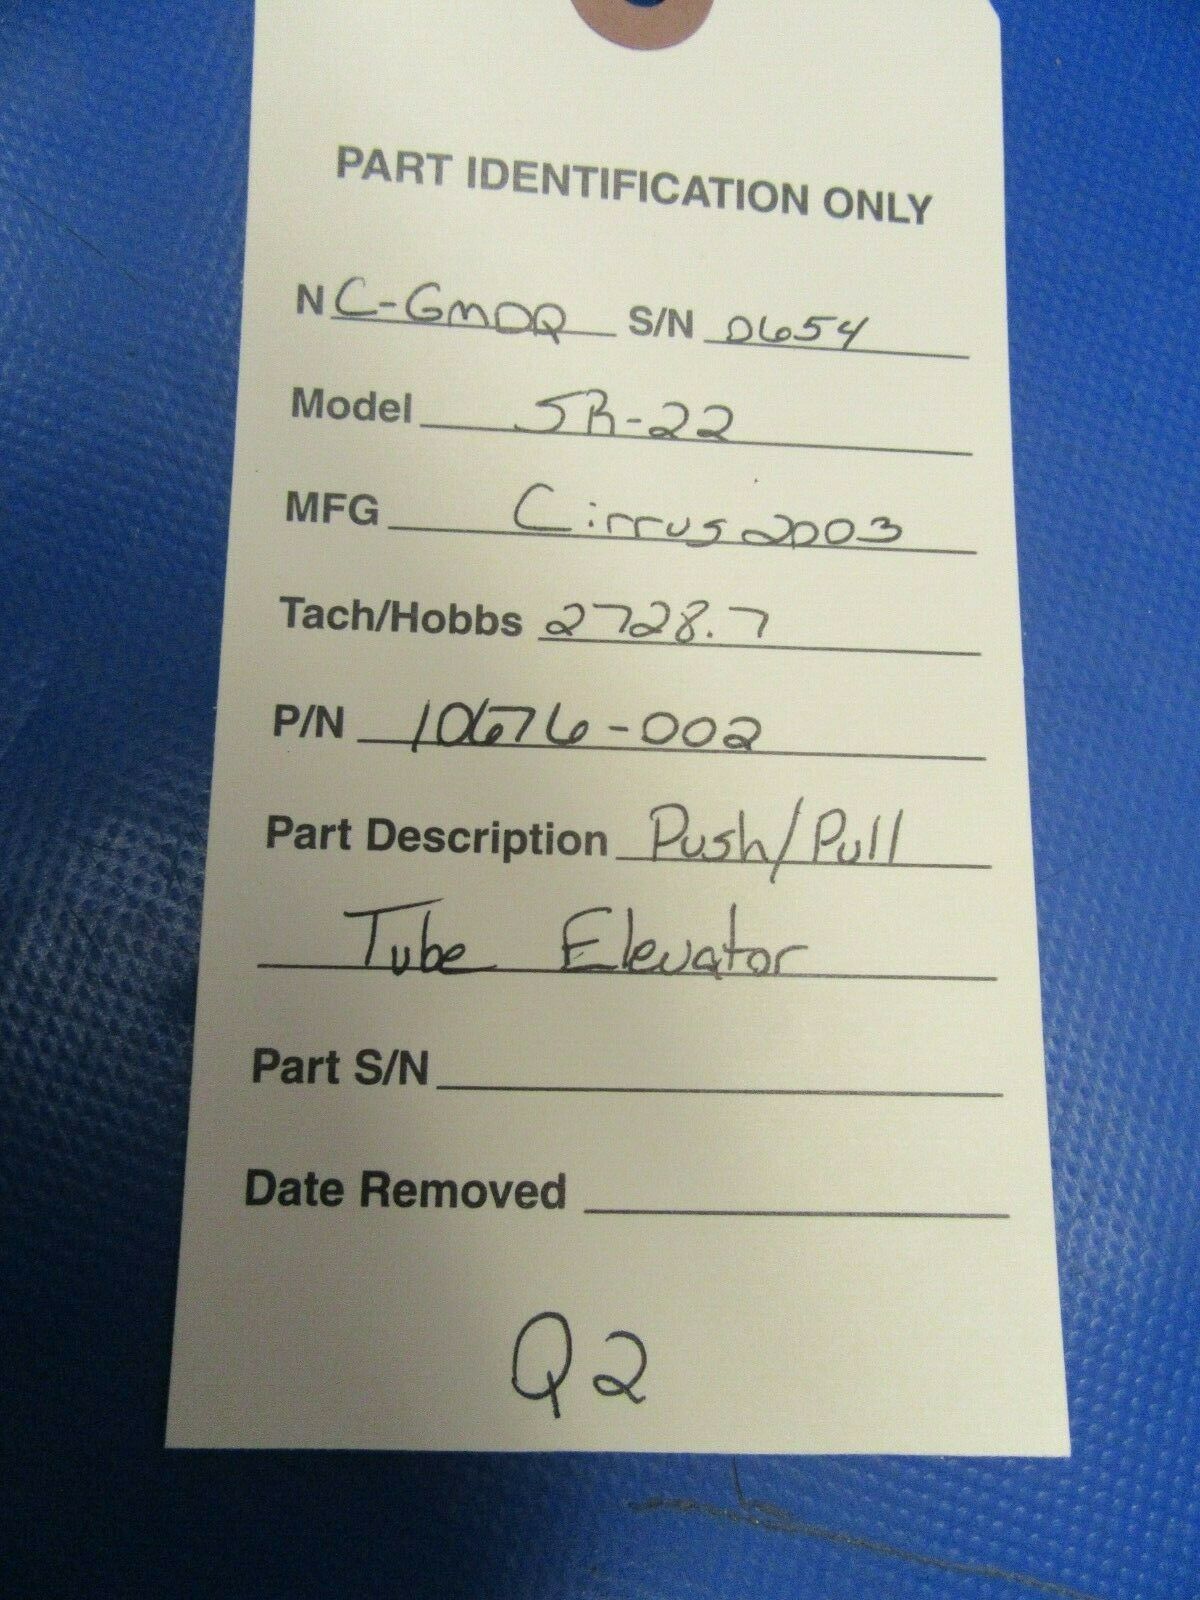 PART IDENTIFICATION ONLY
N C-GMDQ S/N 0654
Model SR-22
MFG Cirrus 2003
Tach/Hobbs 2728.7
P/N 10676-002
Part Description Push/Pull
Tube Elevator
Part S/N
Date Removed
Q2